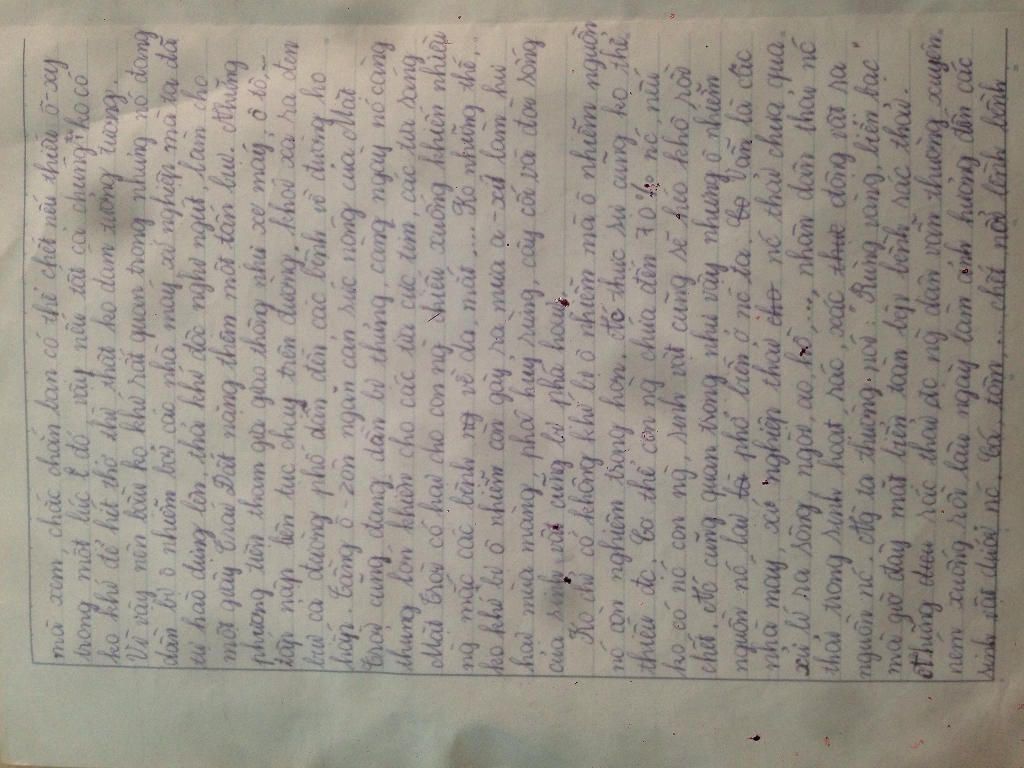 mà xem chắc chắn bạn có thể chết nếu thiếu ô-xy
trong một lúc. Do vậy nếu tất cả chúng ta ko có
ko khí để hít thở thì thật ko dám tưởng tượng.
Vì vậy nên bầu ko khí rất quan trọng nhưng nó đang
dần bị ô nhiễm bởi các nhà máy, xí nghiệp mà ta đã
tự hào dựng lên, thải khí độc nghi ngút, làm cho
một quầy Trái Đất nặng thêm một tấn bụi. Những
phương tiện tham gia giao thông như xe máy, ô tô,...
tấp nập liên tục chạy trên đường, khói xả ra đen
bụi cả đường phố dẫn đến các bệnh về đường hô
hấp. Tầng ô-zôn ngăn cản sức nóng của Mặt
Trời cũng đang dần bị thủng, càng ngày nó càng
thủng lớn khiến cho các tia cực tím, các tia sáng
Mặt Trời có hại cho con ng chiếu xuống khiến nhiều
ng mắc các bệnh về da, mắt.... Ko những thế,
ko khí bị ô nhiễm còn gây ra mưa a-xít làm hư
hại mùa màng, phá hủy rừng, cây cối và đời sống
của sinh vật cũng bị phá hoại.
Ko chỉ có không khí bị ô nhiễm mà ô nhiễm nguồn
nó còn nghiêm trọng hơn. thức sự cũng ko thể
thiếu đc. Cơ thể con ng chứa đến 70% nó, nếu
ko có nó con ng, sinh vật cũng sẽ héo khô rồi
chết. Nó cũng quan trọng như vậy nhưng ô nhiễm
nguồn nó lại phổ biến ở nó ta. Vẫn là các
nhà máy, xí nghiệp thải nó thải chưa qua
xử lí ra sông ngòi, ao hồ,..., nhân dân thải nó
thải trong sinh hoạt, rác, xác động vật ra
nguồn nó. Ng ta thường nói "Rừng vàng, biển bạc"
mà giờ đây mặt biển toàn lềnh bềnh rác thải.
Những rác thải do ng dân vẫn thường xuyên
ném xuống rồi lâu ngày làm ảnh hưởng đến các
sinh vật dưới nó. Cá, tôm,... chết nổi lềnh bềnh